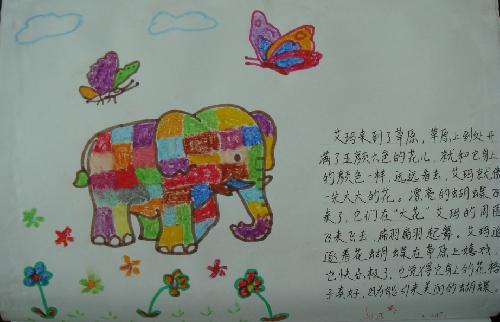 艾玛来到了草原,草原上到处开
满了五颜六色的花儿,就和它身上
的颜色一样,远远看去,艾玛就像
一朵大大的花。漂亮的蝴蝶飞
来了,它们在“大花”艾玛的周围
飞来飞去,扇羽扇羽起舞。艾玛追
逐着花蝴蝶在草原上嬉戏,
它快乐极了,它觉得它身上的花格
子真好,因为能引来美丽的蝴蝶。